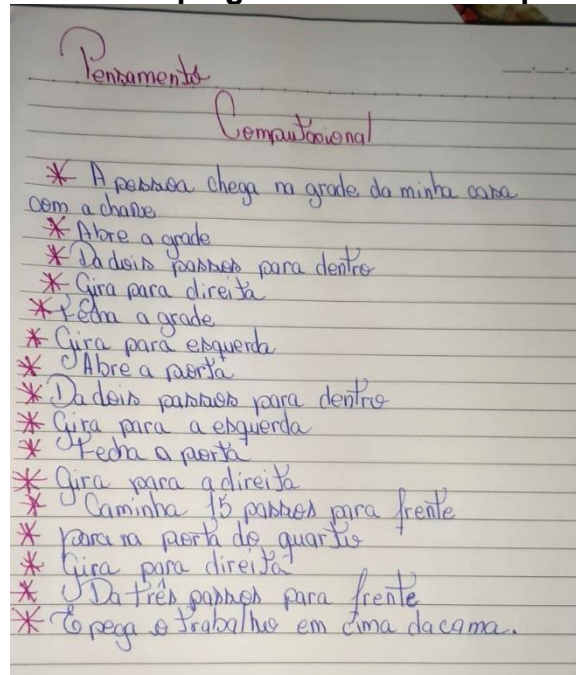 Pensamento
Computacional
* A pessoa chega na grade da minha casa
com a chave
* Abre a grade
* Da dois passos para dentro
* Gira para direita
* Fecha a grade
* Gira para esquerda
* Abre a porta
* Da dois passos para dentro
* Gira para a esquerda
* Fecha a porta
* Gira para a direita
* Caminha 15 passos para frente
* para na porta do quarto
* Gira para direita
* Da três passos para frente
* E pega o trabalho em cima da cama.